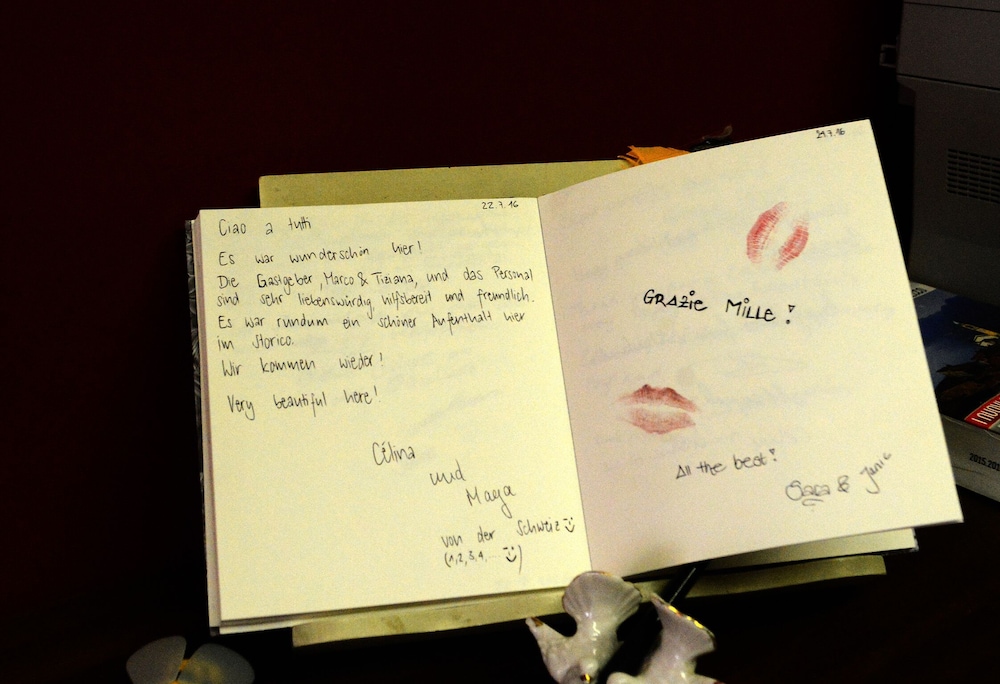 22.7.16
Ciao a tutti
Es war wunderschön hier!
Die Gastgeber, Marco & Tiziana, und das Personal
sind sehr liebenswürdig, hilfsbereit und freundlich.
Es war rundum ein schöner Aufenthalt hier
im Storico.
Wir kommen wieder!
Very beautiful here!
Célina
und
Maya
von der Schweiz
(1,2,3,4,....)
24.7.16
GRAZIE MILLE!
All the best!
Sara & Janic
2015.201